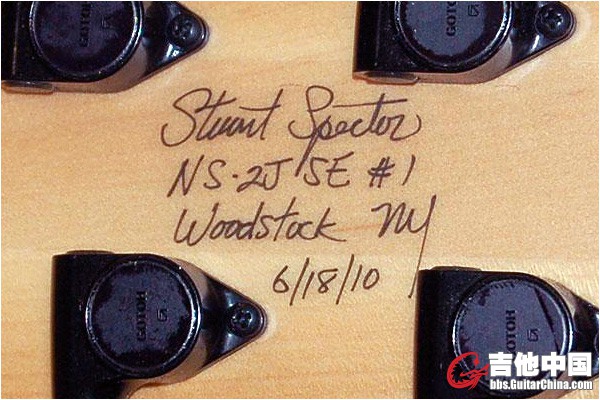 GOTOH
GOTOH
Stuart Spector
NS-2J SE #1
Woodstock NY
6/18/10
GOTOH
GOTOH
吉他中国
bbs.GuitarChina.com